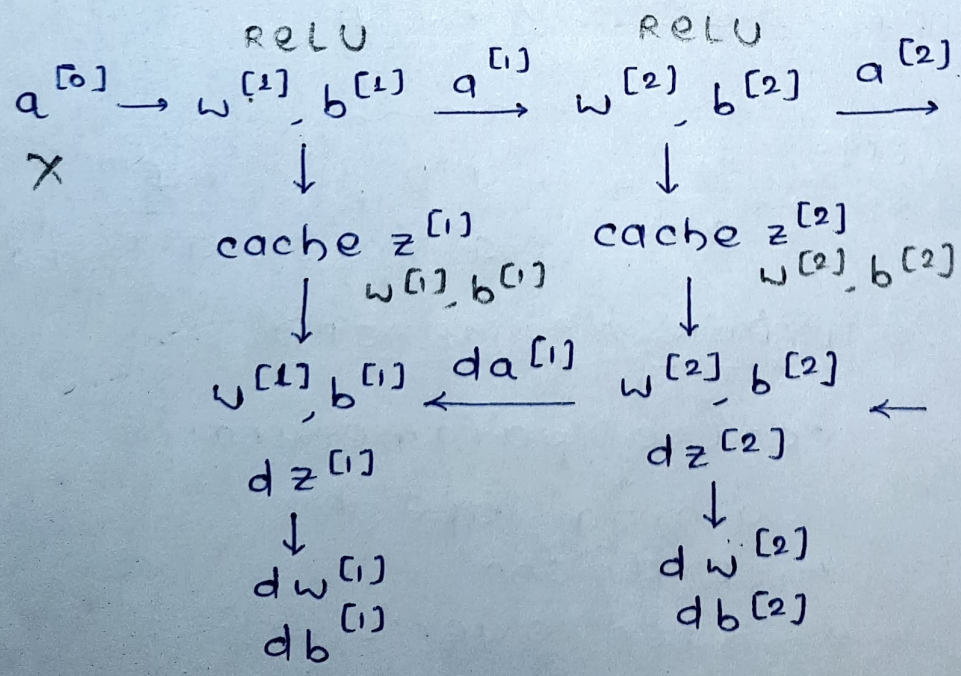 ReLU ReLU
a[0] → w[1], b[1] a[1] → w[2], b[2] a[2] →
X ↓ ↓
cache z[1] cache z[2]
w[1], b[1] w[2], b[2]
↓ ↓
w[1], b[1] da[1] ← w[2], b[2] ←
dz[1] dz[2]
↓ ↓
dw[1] dw[2]
db[1] db[2]